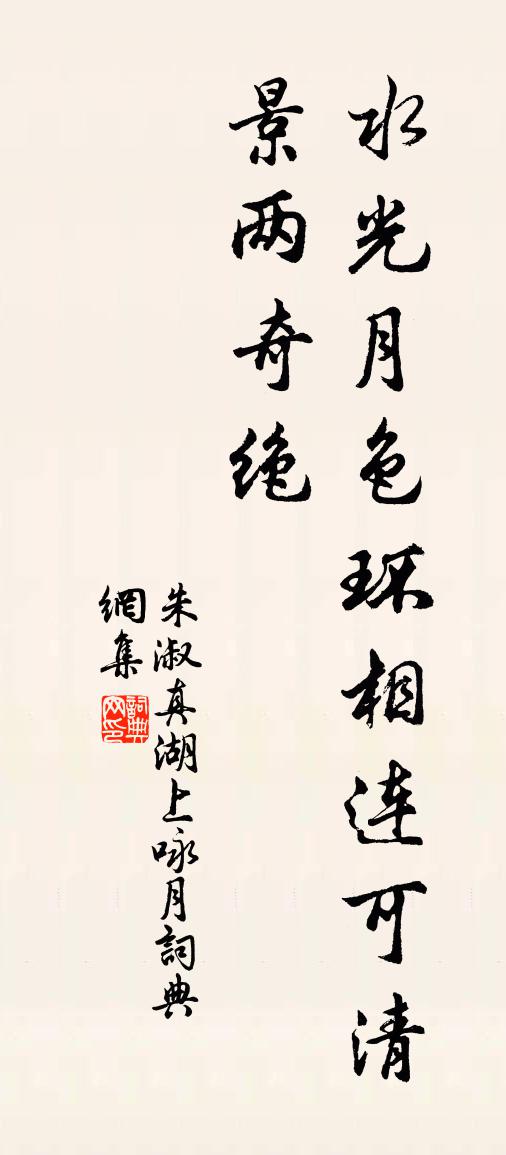 水光月色环相连可清
景两奇绝
朱淑真湖上咏月詞典
網集
詞典
网印